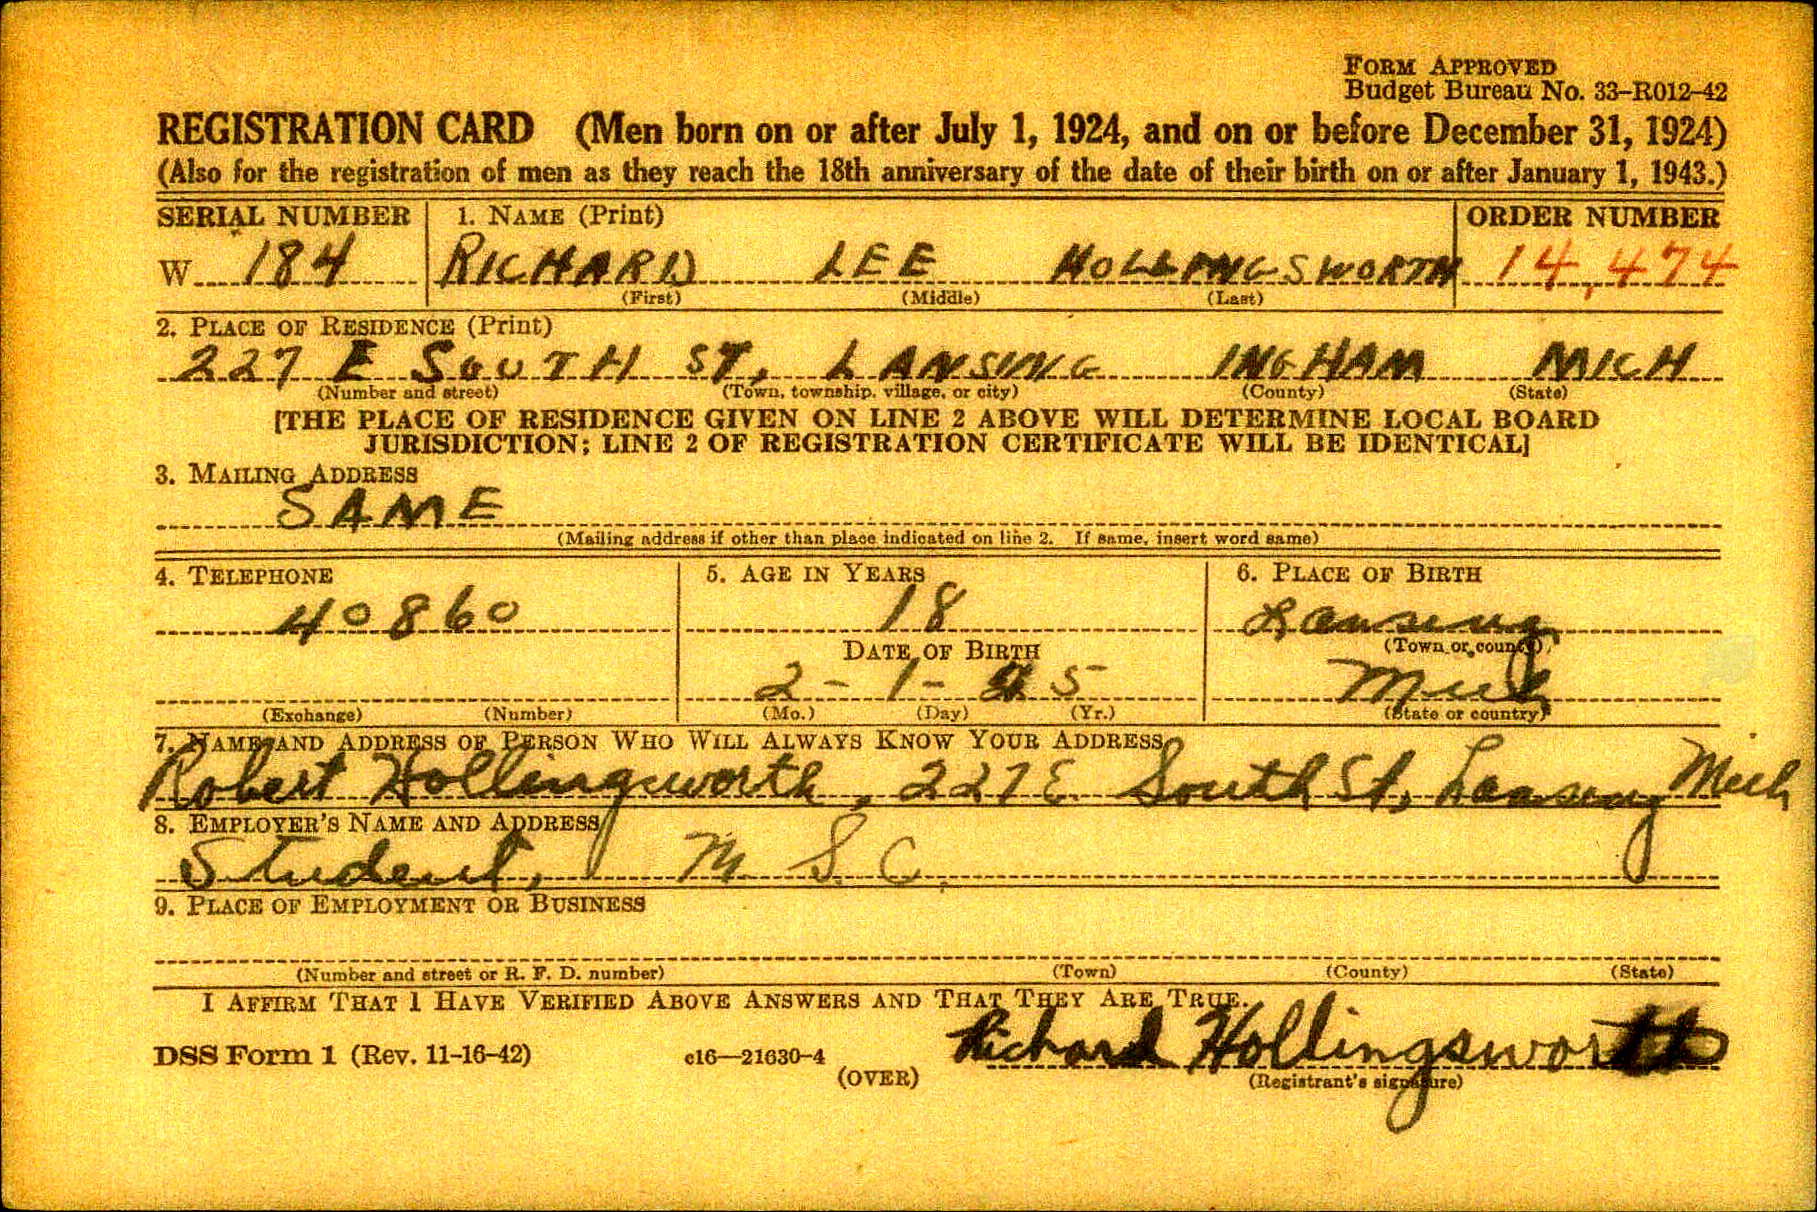 FORM APPROVED
Budget Bureau No. 33-R012-42
REGISTRATION CARD (Men born on or after July 1, 1924, and on or before December 31, 1924)
(Also for the registration of men as they reach the 18th anniversary of the date of their birth on or after January 1, 1943.)
SERIAL NUMBER 1. NAME (Print) ORDER NUMBER
W 184 RICHARD LEE HOLLINGSWORTH 14,474
(First) (Middle) (Last)
2. PLACE OF RESIDENCE (Print)
227 E SOUTH ST, LANSING INGHAM MICH
(Number and street) (Town, township, village, or city) (County) (State)
[THE PLACE OF RESIDENCE GIVEN ON LINE 2 ABOVE WILL DETERMINE LOCAL BOARD
JURISDICTION; LINE 2 OF REGISTRATION CERTIFICATE WILL BE IDENTICAL]
3. MAILING ADDRESS
SAME
(Mailing address if other than place indicated on line 2. If same, insert word same)
4. TELEPHONE 5. AGE IN YEARS 6. PLACE OF BIRTH
40860 18 Lansing
(Town or county)
DATE OF BIRTH
2-1-25 Mich
(Exchange) (Number) (Mo.) (Day) (Yr.) (State or country)
7. NAME AND ADDRESS OF PERSON WHO WILL ALWAYS KNOW YOUR ADDRESS
Robert Hollingsworth, 227 E South St, Lansing Mich
8. EMPLOYER'S NAME AND ADDRESS
Student, M. S. C.
9. PLACE OF EMPLOYMENT OR BUSINESS
(Number and street or R. F. D. number) (Town) (County) (State)
I AFFIRM THAT I HAVE VERIFIED ABOVE ANSWERS AND THAT THEY ARE TRUE.
Richard Hollingsworth
DSS Form 1 (Rev. 11-16-42) c16—21630-4
(OVER) (Registrant's signature)